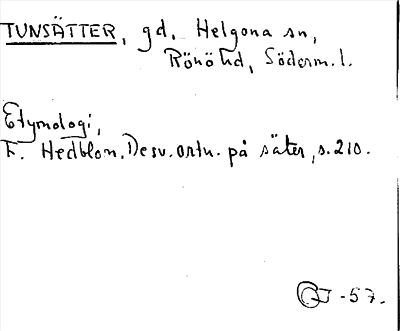 TUNSÄTTER, gd, Helgona sn,
Rönö hd, Söderm.l.
Etymologi,
F. Hedblom, De sv. ortn. på säter, s. 210.
-57.